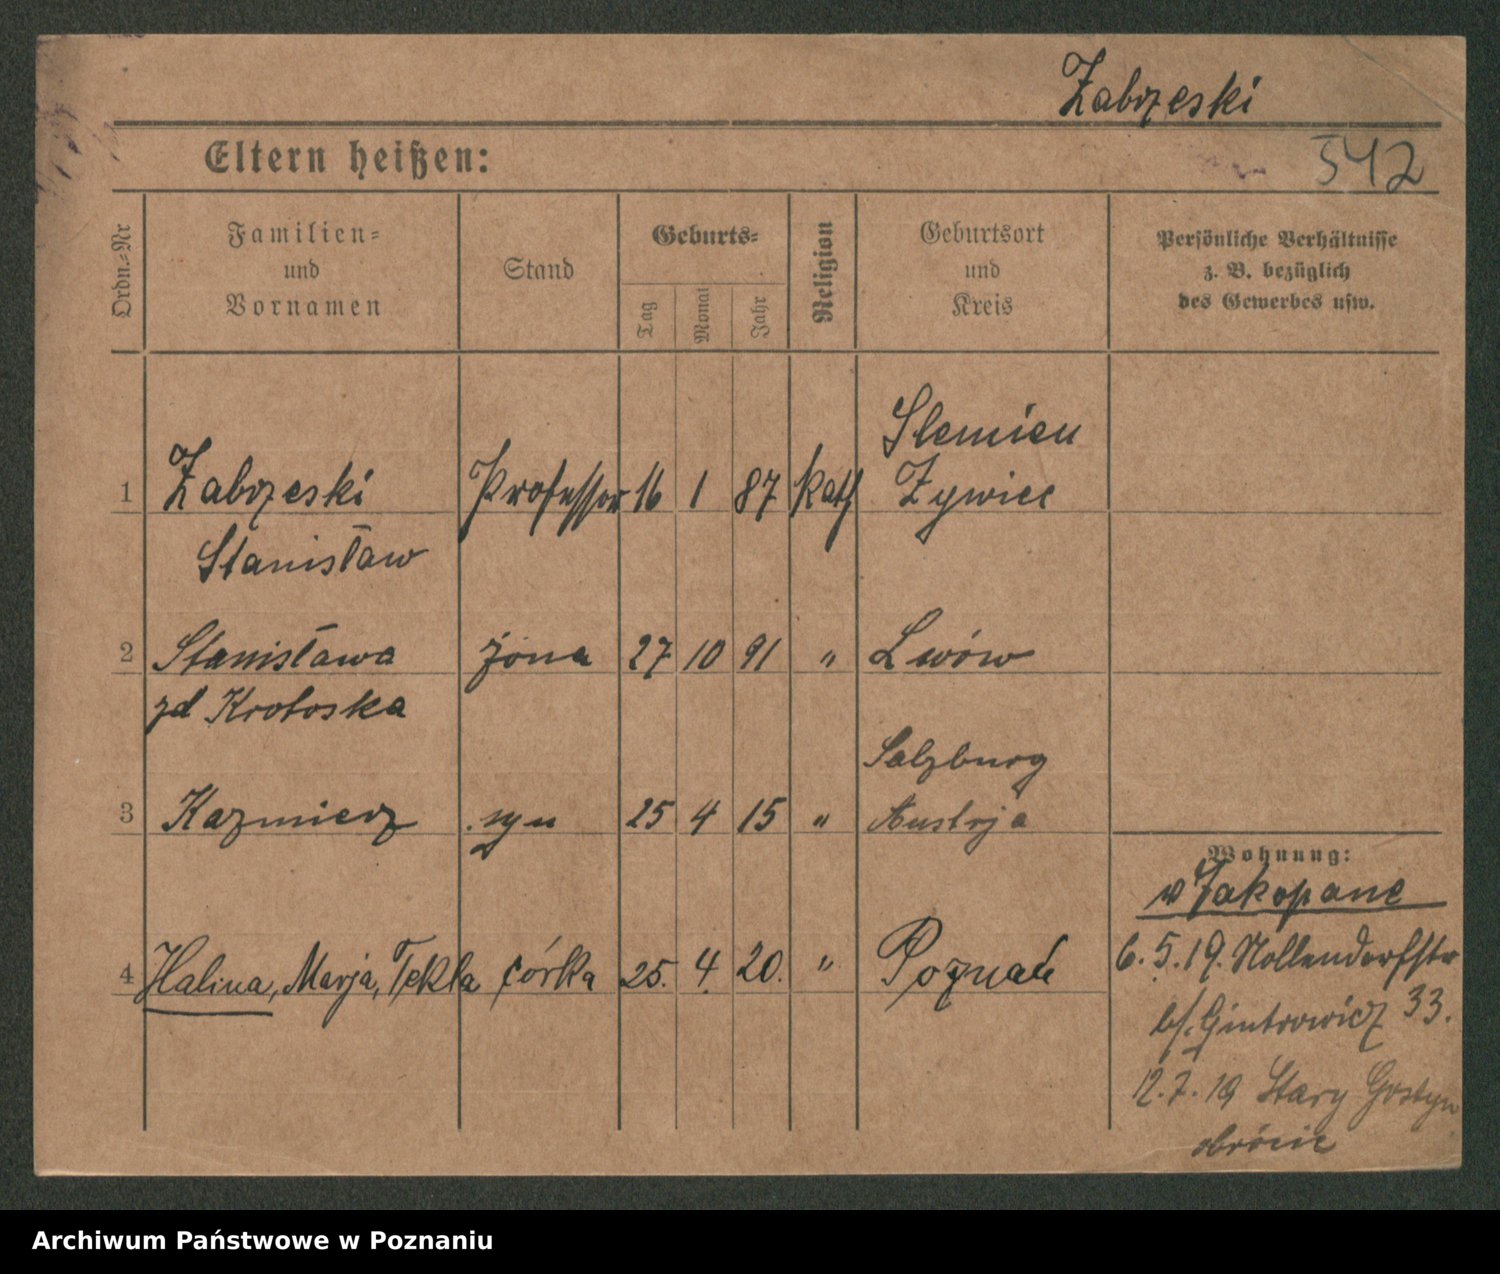 Zabrzeski
Eltern heißen:
542
Ordn.-Nr
Familien-
und
Vornamen
Stand
Geburts-
Tag
Monat
Jahr
Religion
Geburtsort
und
Kreis
Persönliche Verhältnisse
z. B. bezüglich
des Gewerbes usw.
Slemien
1 Zabrzeski Professor 16 1 87 kath Zywiec
Stanisław
2 Stanisława żona 27 10 91 " Lwów
zd Krotoska
Salzburg
3 Kazmierz syn 25 4 15 " Austrja
Wohnung:
w Zakopane
4 Halina, Marja, Tekla córka 25. 4. 20. " Poznań
6. 5. 19. Nollendorfstr
b/. Gintrowicz 33.
12. 7. 19 Stary Gostyn
obrócić
Archiwum Państwowe w Poznaniu